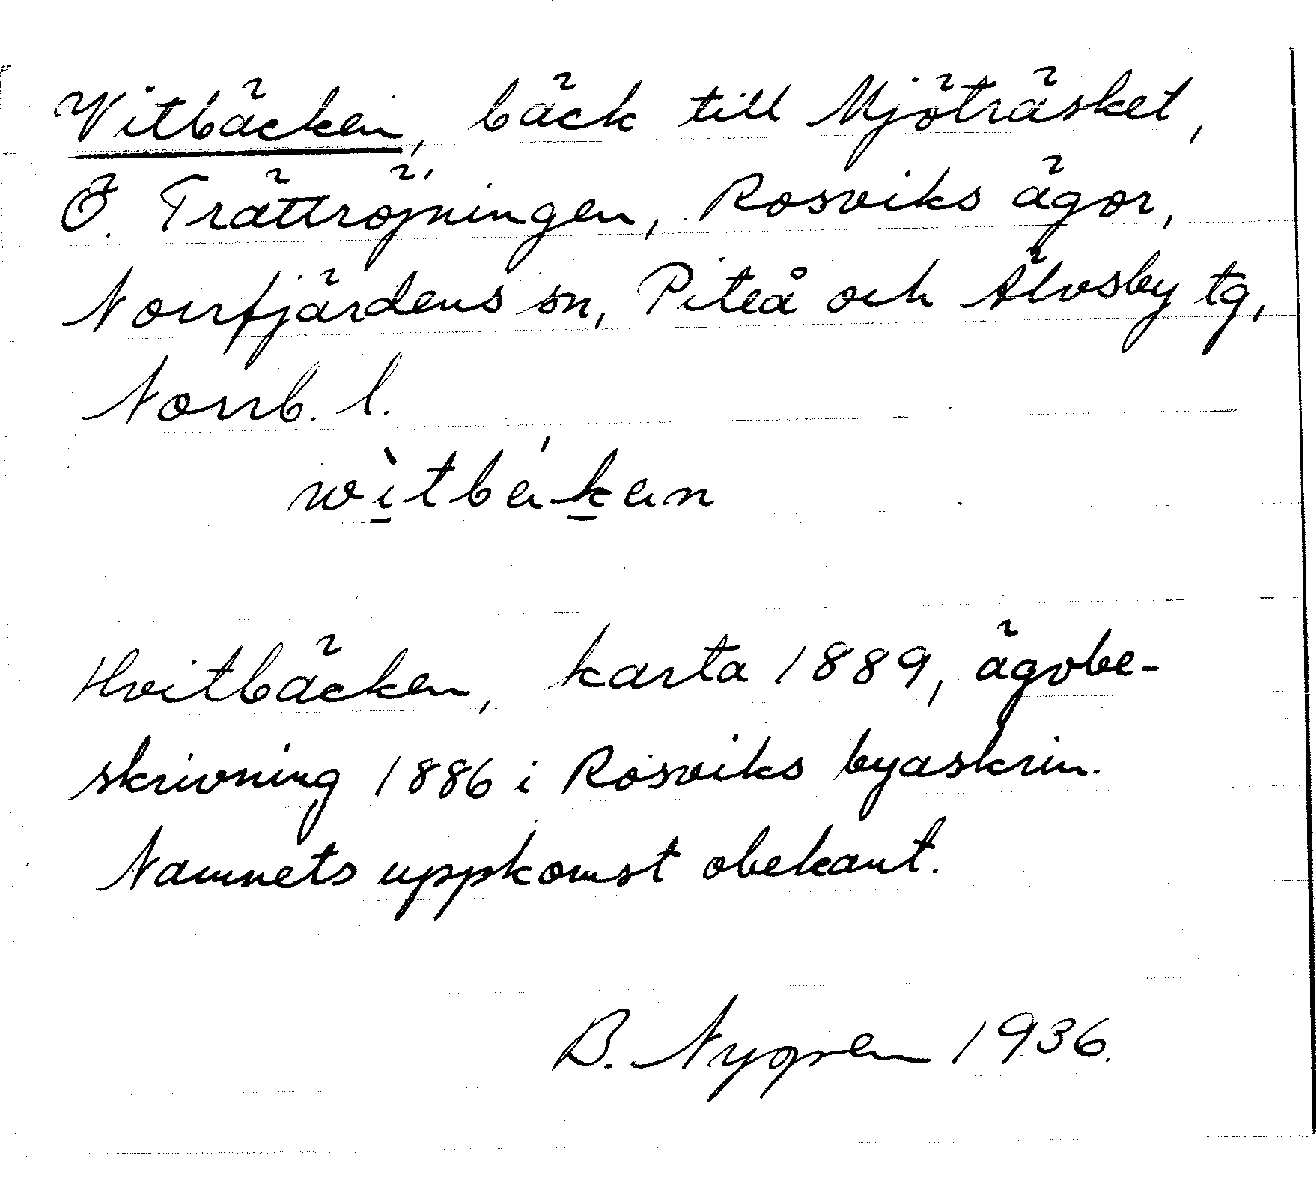 Vitbäcken, bäck till Mjöträsket,
Ö. Trättröjningen, Rosviks ägor,
Norrfjärdens sn, Piteå och Älvsby tg,
Norrb. l.
Hvitbäcken, karta 1889, ägobe-
skrivning 1886 i Rosviks byaskrin.
Namnets uppkomst obekant.
B. Nygren 1936.